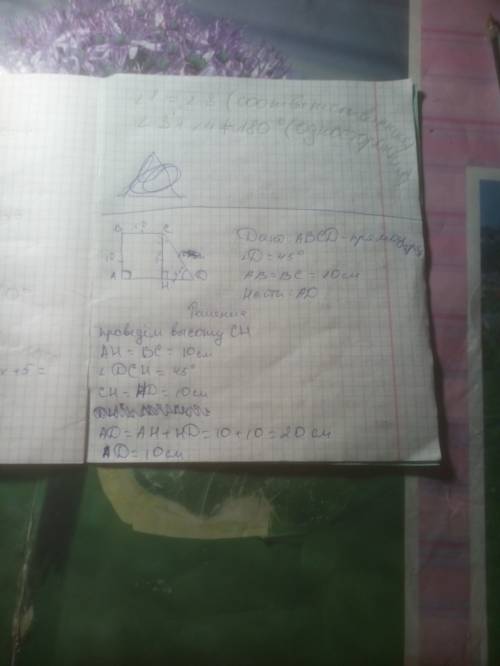 ∠1 = ∠3 (соответственные
∠3 + ∠4 = 180° (односторонние
B 10 C
10
A H D
Дано: ABCD-прямоуг.
∠D = 45°
AB = BC = 10см
Найти: AD
Решение
проведём высоту CH
AH = BC = 10см
∠DCH = 45°
CH = HD = 10см
AD = AH + HD = 10 + 10 = 20 см
AD = 10см
x + 5 =